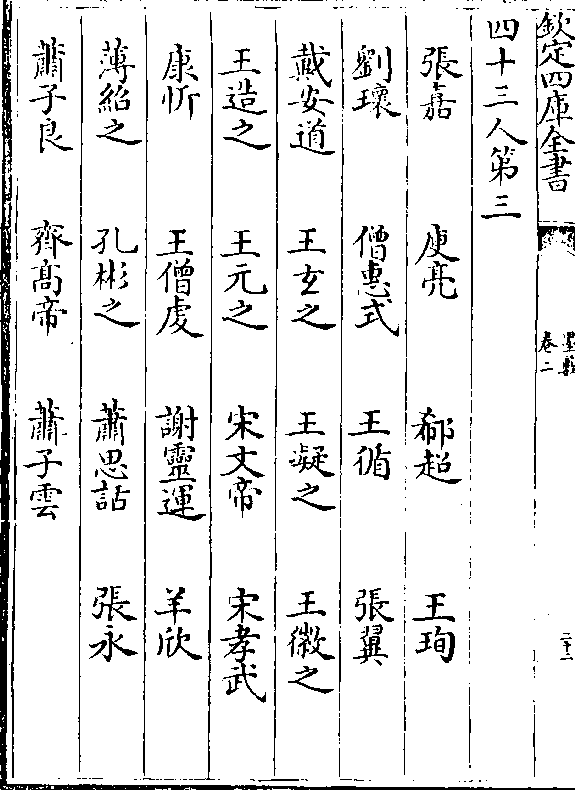 欽定四庫全書
墨藪
卷二
二十二
四十三人第三
張嘉 庾亮 郗超 王珣
劉瓌 僧惠式 王循 張翼
戴安道 王玄之 王凝之 王徽之
王造之 王元之 宋文帝 宋孝武
康昕 王僧虔 謝靈運 羊欣
薄紹之 孔彬之 蕭思話 張永
蕭子良 齊髙帝 蕭子雲